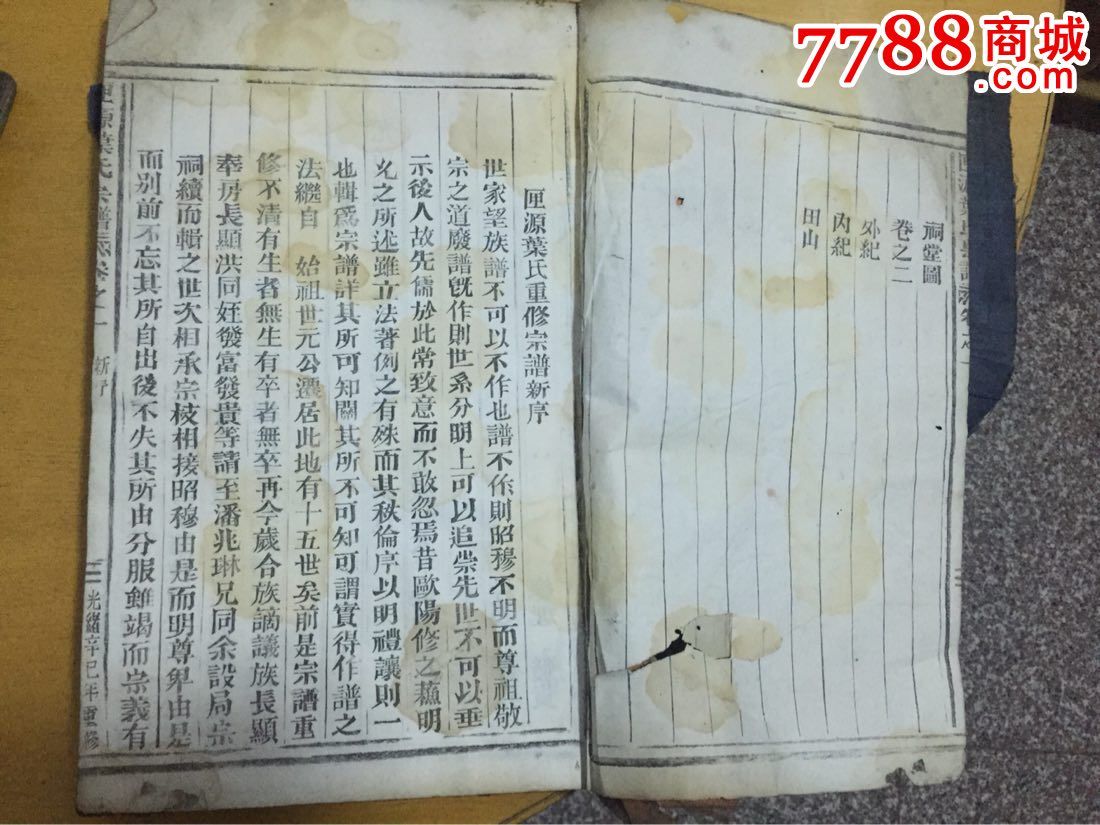 7788商城
.com
祠堂圖
卷之二
外紀
內紀
田山
匣源葉氏重修宗譜新序
世家望族譜不可以不作也譜不作則昭穆不明而尊祖敬
宗之道廢譜旣作則世系分明上可以追崇先世不可以垂
示後人故先儒於此常致意而不敢忽焉昔歐陽修之蘇明
允之所述雖立法著例之有殊而其秩倫序以明禮讓則一
也輯爲宗譜詳其所可知闕其所不可知可謂實得作譜之
法繼自 始祖世元公遷居此地有十五世矣前是宗譜重
修不清有生者無生有卒者無卒再今歲合族謫議族長顯
奉房長顯洪同姪發富發貴等請至潘兆琳兄同余設局宗
祠續而輯之世次相承宗枝相接昭穆由是而明尊卑由是
而别前不忘其所自出後不失其所由分服雖竭而崇義有
源葉氏宗譜 卷之一 新序 光緒辛巳年重修